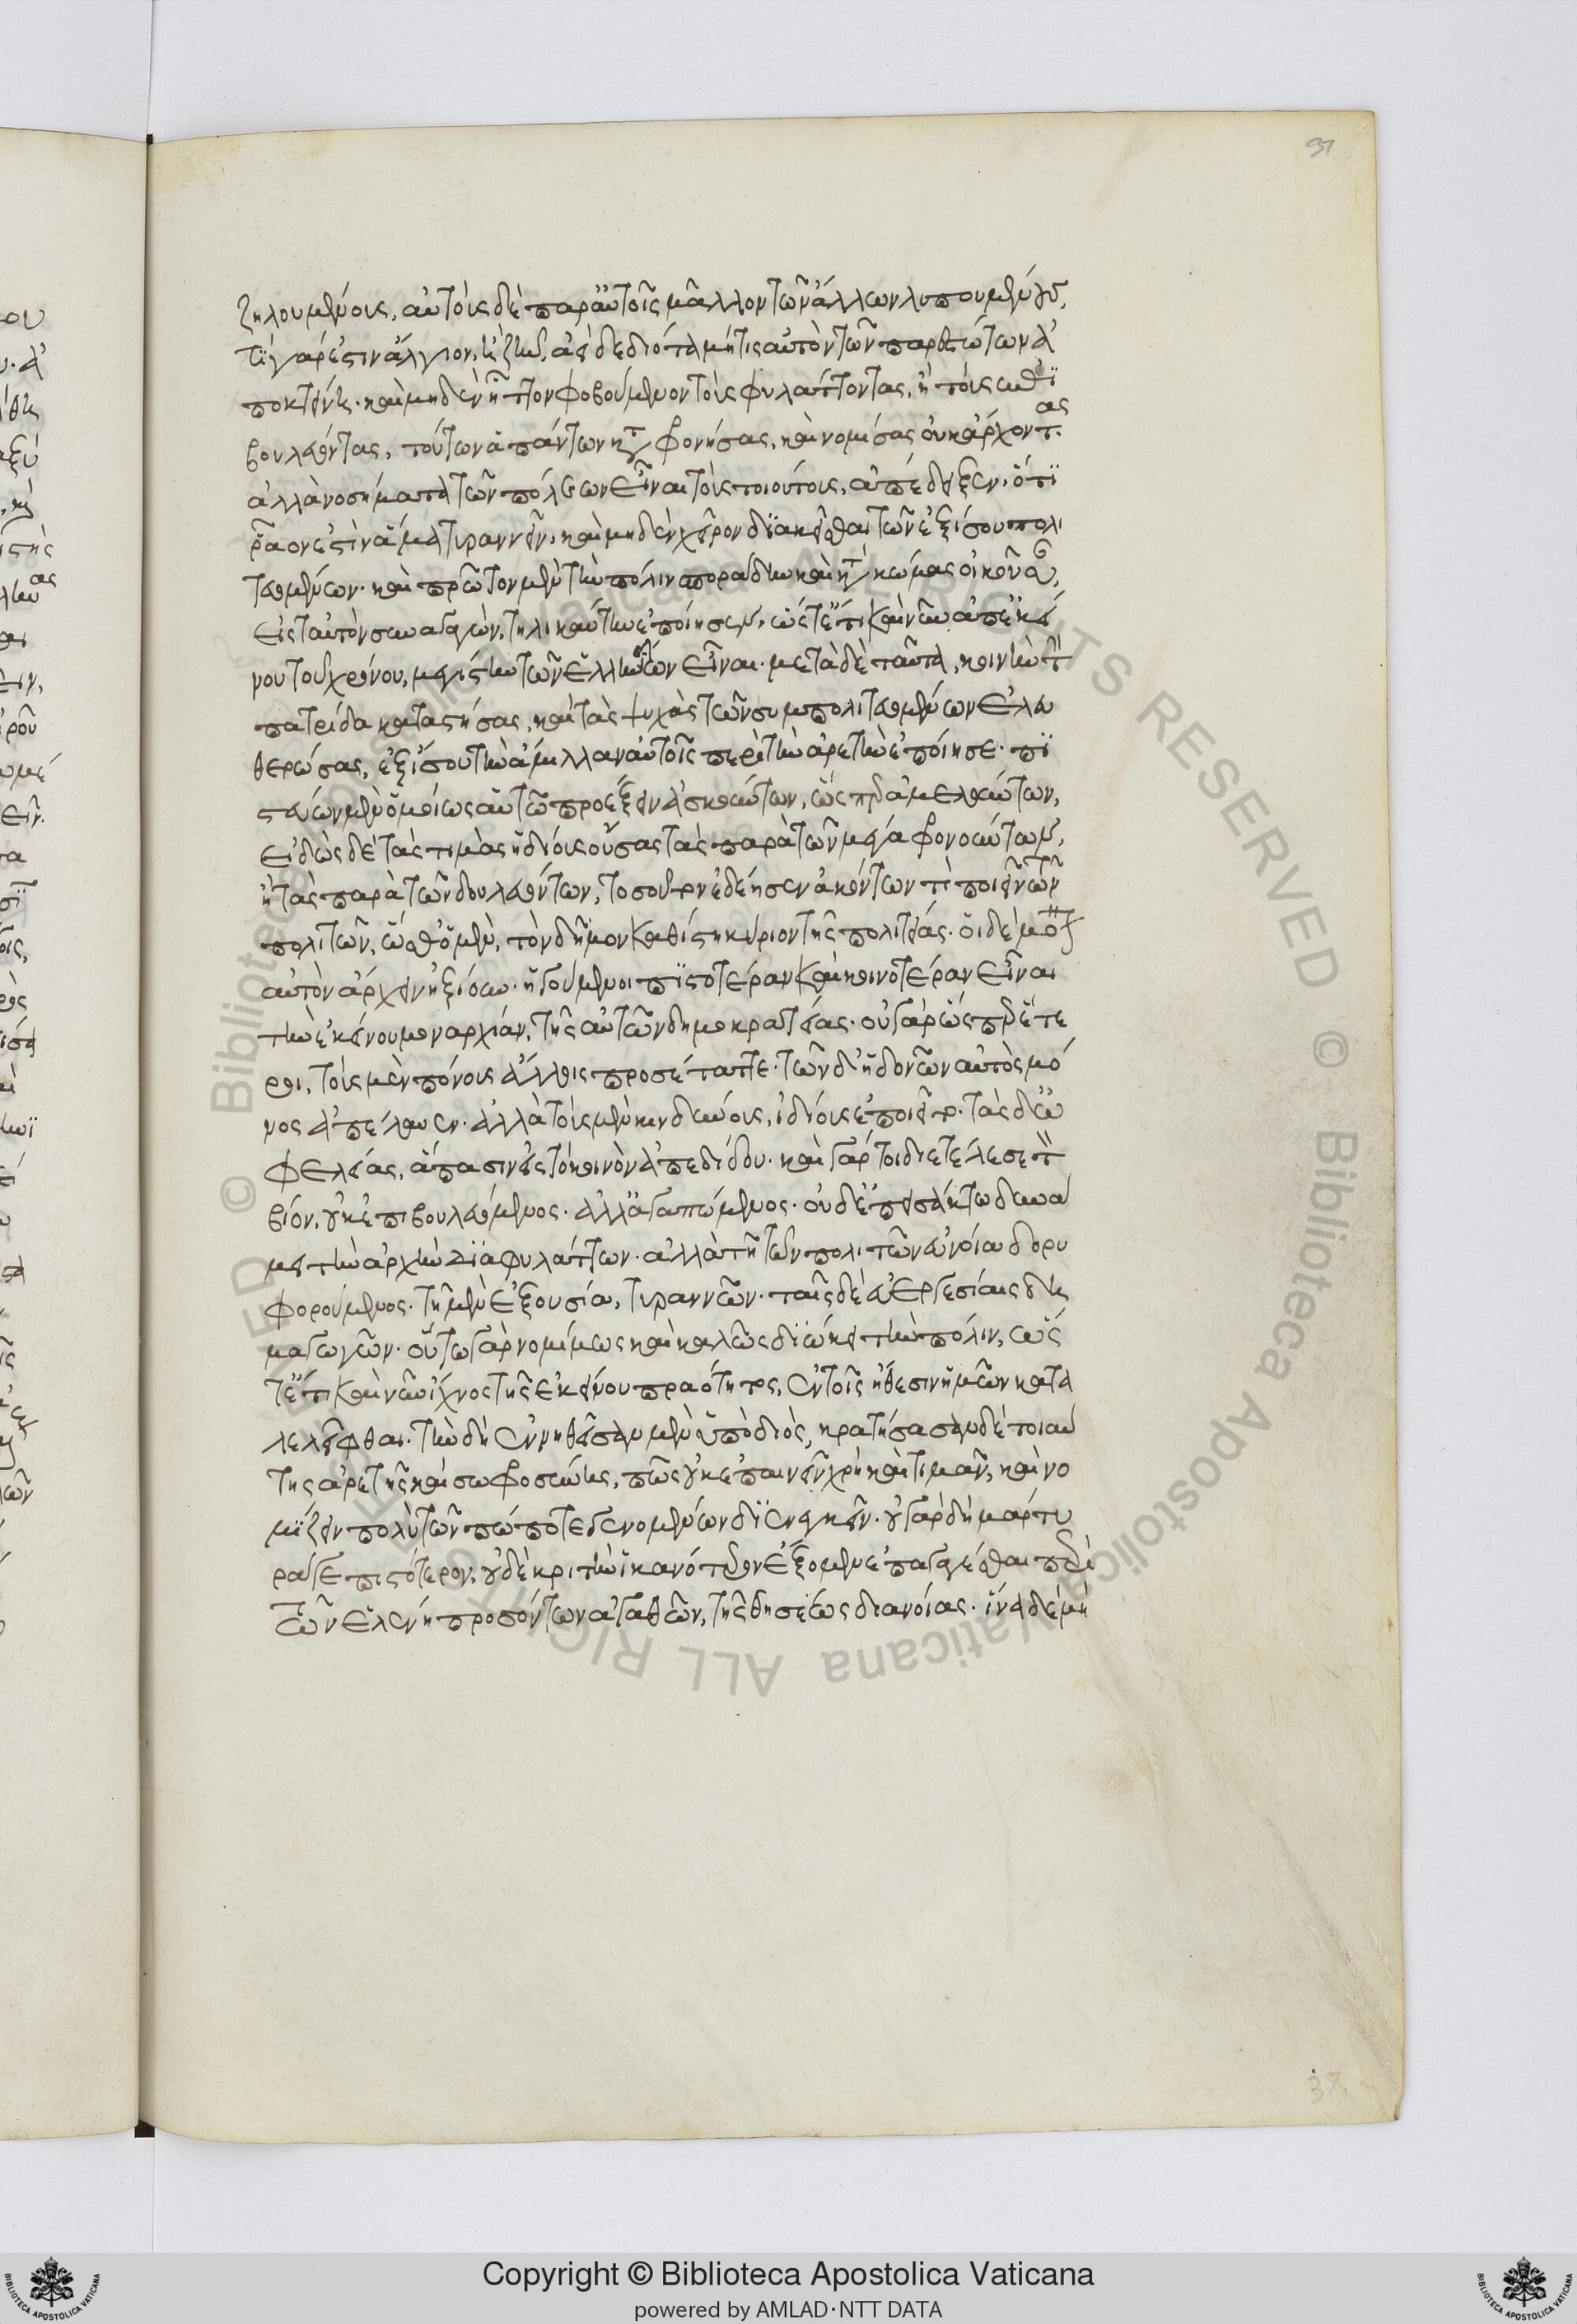 ζηλουμένους, αὐτοὺς δὲ παρ' αὑτοῖς μᾶλλον τῶν ἄλλων λυπουμένους,
τί γάρ ἐστιν ἄλγιον, ἢ ζῆν, ἀεὶ δεδιότα μή τις αὐτὸν τῶν παρεστώτων ἀ
ποκτείνῃ· καὶ μηδὲν ἧττον φοβούμενον τοὺς φυλάττοντας, ἢ τοὺς ἐπι
βουλεύοντας, τούτων ἁπάντων καταφρονήσας, καὶ νομίσας οὐκ ἄρχοντας
ἀλλὰ νοσήματα τῶν πόλεων εἶναι τοὺς τοιούτους, ἀπέδειξεν, ὅτι
ῥᾷον ἐστὶν ἅμα τυραννεῖν, καὶ μηδὲν χεῖρον διακεῖσθαι τῶν ἐξίσου πολι
τευομένων· καὶ πρῶτον μὲν τὴν πόλιν σποράδην καὶ κατὰ κώμας οἰκοῦσαν,
εἰς ταὐτὸν συναγαγὼν, τηλικαύτην ἐποίησεν, ὥστ' ἔτι καὶ νῦν ἀπ' ἐκεί
νου τοῦ χρόνου, μεγίστην τῶν ἑλληνίδων εἶναι· μετὰ δὲ ταῦτα, κοινὴν τὴν
πατρίδα καταστήσας, καὶ τὰς ψυχὰς τῶν συμπολιτευομένων ἐλευ
θερώσας, ἐξίσου τὴν ἅμιλλαν αὐτοῖς περὶ τὴν ἀρετὴν ἐποίησε· πι
στεύων μὲν ὁμοίως αὐτῶν προέξειν ἀσκούντων, ὥσπερ ἀμελούντων,
εἰδὼς δὲ τὰς τιμὰς ἡδίους οὔσας τὰς παρὰ τῶν μέγα φρονούντων,
ἢ τὰς παρὰ τῶν δουλευόντων, τοσούτου ἐδέησεν ἀκόντων τὶ ποιεῖν τῶν
πολιτῶν, ὥσθ' ὁ μὲν, τὸν δῆμον καθίστη κύριον τῆς πολιτείας· οἱ δὲ
αὐτὸν ἄρχειν ἠξίουν· ἡγούμενοι πιστοτέραν καὶ κοινοτέραν εἶναι
τὴν ἐκείνου μοναρχίαν, τῆς αὐτῶν δημοκρατείας· οὐ γὰρ ὥσπερ ἕτε
ροι, τοὺς μὲν πόνους ἄλλοις προσέταττε· τῶν δ' ἡδονῶν αὐτὸς μό
νος ἀπέλαυεν· ἀλλὰ τοὺς μὲν κινδύνους, ἰδίους ἐποιεῖτο· τὰς δ' ὠ
φελείας, ἅπασιν εἰς τὸ κοινὸν ἀπεδίδου· καὶ γάρ τοι διετέλεσε τὸν
βίον, οὐκ ἐπιβουλευόμενος· ἀλλ' ἀγαπώμενος· οὐδ' ἐπεισάκτω δυνά
μει τὴν ἀρχὴν διαφυλάττων· ἀλλὰ τῇ τῶν πολιτῶν εὐνοία δορυ
φορούμενος· τῇ μὲν ἐξουσία, τυραννῶν· ταῖς δὲ εὐεργεσίαις δη
μαγωγῶν· οὕτω γὰρ νομίμως καὶ καλῶς διώκει τὴν πόλιν, ὥσ
τ' ἔτι καὶ νῦν ἴχνος τῆς ἐκείνου πραότητος, ἐν τοῖς ἤθεσιν ἡμῶν κατα
λελεῖφθαι· τὴν δὴ γεννηθεῖσαν μὲν ὑπὸ διὸς, κρατήσασαν δὲ τοιαύ
της ἀρετῆς καὶ σωφροσύνης, πῶς οὐκ ἐπαινεῖν χρὴ καὶ τιμᾶν, καὶ νο
μίζειν πολὺ τῶν πώποτε γενομένων διενεγκεῖν· οὐ γὰρ δὴ μάρτυ
ρά γε πιστότερον, οὐδὲ κριτὴν ἱκανώτερον ἕξομεν ἐπαγαγέσθαι περὶ
τῶν ἑλένῃ προσόντων ἀγαθῶν, τῆς θησέως διανοίας· ἵνα δὲ μὴ